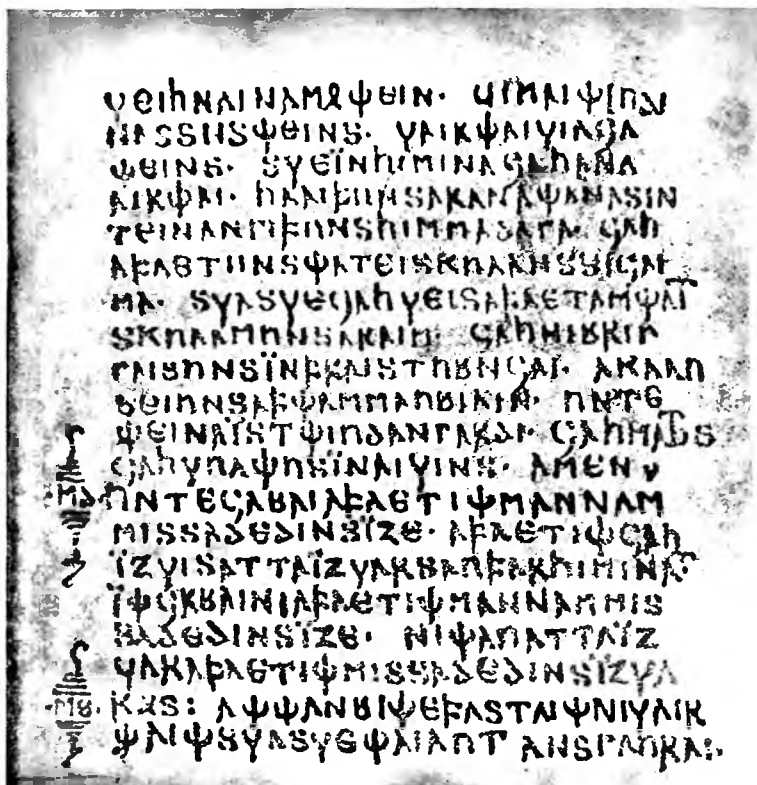 𐍅𐌴𐌹𐌷𐌽𐌰𐌹𐌽𐌰𐌼𐍉𐌸𐌴𐌹𐌽· 𐌵𐌹𐌼𐌰𐌹𐌸𐌹𐌿𐌳𐌹
𐌽𐌰𐍃𐍃𐌿𐍃𐌸𐌴𐌹𐌽𐍃· 𐍅𐌰𐌹𐍂𐌸𐌰𐌹𐍅𐌹𐌻𐌾𐌰
𐌸𐌴𐌹𐌽𐍃· 𐍃𐍅𐌴𐌹̈𐌽𐌷𐌹𐌼𐌹𐌽𐌰𐌾𐌰𐌷𐌰𐌽𐌰
𐌰𐌹𐍂𐌸𐌰𐌹· 𐌷𐌻𐌰𐌹𐍆𐌿𐌽𐍃𐌰𐍂𐌰𐌽𐌰𐌸𐌰𐌽𐌰𐍃𐌹𐌽
𐍄𐌴𐌹𐌽𐌰𐌽𐌲𐌹𐍆𐌿𐌽𐍃𐌷𐌹𐌼𐌼𐌰𐌳𐌰𐌲𐌰· 𐌾𐌰𐌷
𐌰𐍆𐌻𐌴𐍄𐌿𐌽𐍃𐌸𐌰𐍄𐌴𐌹𐍃𐌺𐌿𐌻𐌰𐌽𐍃𐍃𐌹𐌾𐌰𐌹
𐌼𐌰· 𐍃𐍅𐌰𐍃𐍅𐌴𐌾𐌰𐌷𐍅𐌴𐌹𐍃𐌰𐍆𐌻𐌴𐍄𐌰𐌼𐌸𐌰𐌹𐌼
𐍃𐌺𐌿𐌻𐌰𐌼𐌿𐌽𐍃𐌰𐍂𐌰𐌹𐌼· 𐌾𐌰𐌷𐌽𐌹𐌱𐍂𐌹𐌲
𐌲𐌰𐌹𐍃𐌿𐌽𐍃𐌹̈𐌽𐍆𐍂𐌰𐌹𐍃𐍄𐌿𐌱𐌽𐌾𐌰𐌹· 𐌰𐌺𐌻𐌰𐌿
𐍃𐌴𐌹𐌿𐌽𐍃𐌰𐍆𐌸𐌰𐌼𐌼𐌰𐌿𐌱𐌹𐌻𐌹𐌽· 𐌿𐌽𐍄𐌴
𐌸𐌴𐌹𐌽𐌰𐌹̈𐍃𐍄𐌸𐌹𐌿𐌳𐌰𐌽𐌲𐌰𐍂𐌳𐌹· 𐌾𐌰𐌷𐌼𐌰𐌷𐍄𐍃
𐌾𐌰𐌷𐍅𐌿𐌻𐌸𐌿𐍃𐌹̈𐌽𐌰𐌹𐍅𐌹𐌽𐍃· 𐌰𐌼𐌴𐌽
·𐌼𐌳· 𐌿𐌽𐍄𐌴𐌾𐌰𐌱𐌰𐌹𐌰𐍆𐌻𐌴𐍄𐌹𐌸𐌼𐌰𐌽𐌽𐌰𐌼
𐌼𐌹𐍃𐍃𐌰𐌳𐌴𐌳𐌹𐌽𐍃𐌹̈𐌶𐌴· 𐌰𐍆𐌻𐌴𐍄𐌹𐌸𐌾𐌰𐌷
𐌹̈𐌶𐍅𐌹𐍃𐌰𐍄𐍄𐌰𐌹̈𐌶𐍅𐌰𐍂𐍃𐌰𐌿𐍆𐌰𐍂𐌷𐌹𐌼𐌹𐌽𐌰𐌼
𐌹̈𐌸𐌾𐌰𐌱𐌰𐌹𐌽𐌹𐌰𐍆𐌻𐌴𐍄𐌹𐌸𐌼𐌰𐌽𐌽𐌰𐌼𐌼𐌹𐍃
𐍃𐌰𐌳𐌴𐌳𐌹𐌽𐍃𐌹̈𐌶𐌴· 𐌽𐌹𐌸𐌰𐌿𐌰𐍄𐍄𐌰𐌹̈𐌶
𐍅𐌰𐍂𐌰𐍆𐌻𐌴𐍄𐌹𐌸𐌼𐌹𐍃𐍃𐌰𐌳𐌴𐌳𐌹𐌽𐍃𐌹̈𐌶𐍅𐌰
·𐌼𐌴· 𐍂𐍉𐍃: 𐌰𐌸𐌸𐌰𐌽𐌱𐌹𐌸𐌴𐍆𐌰𐍃𐍄𐌰𐌹𐌸𐌽𐌹𐍅𐌰𐌹𐍂
𐌸𐌰𐌹𐌸𐍃𐍅𐌰𐍃𐍅𐌴𐌸𐌰𐌹𐌻𐌹𐌿𐍄𐌰𐌽𐍃𐌲𐌰𐌿𐍂𐌰𐌹·